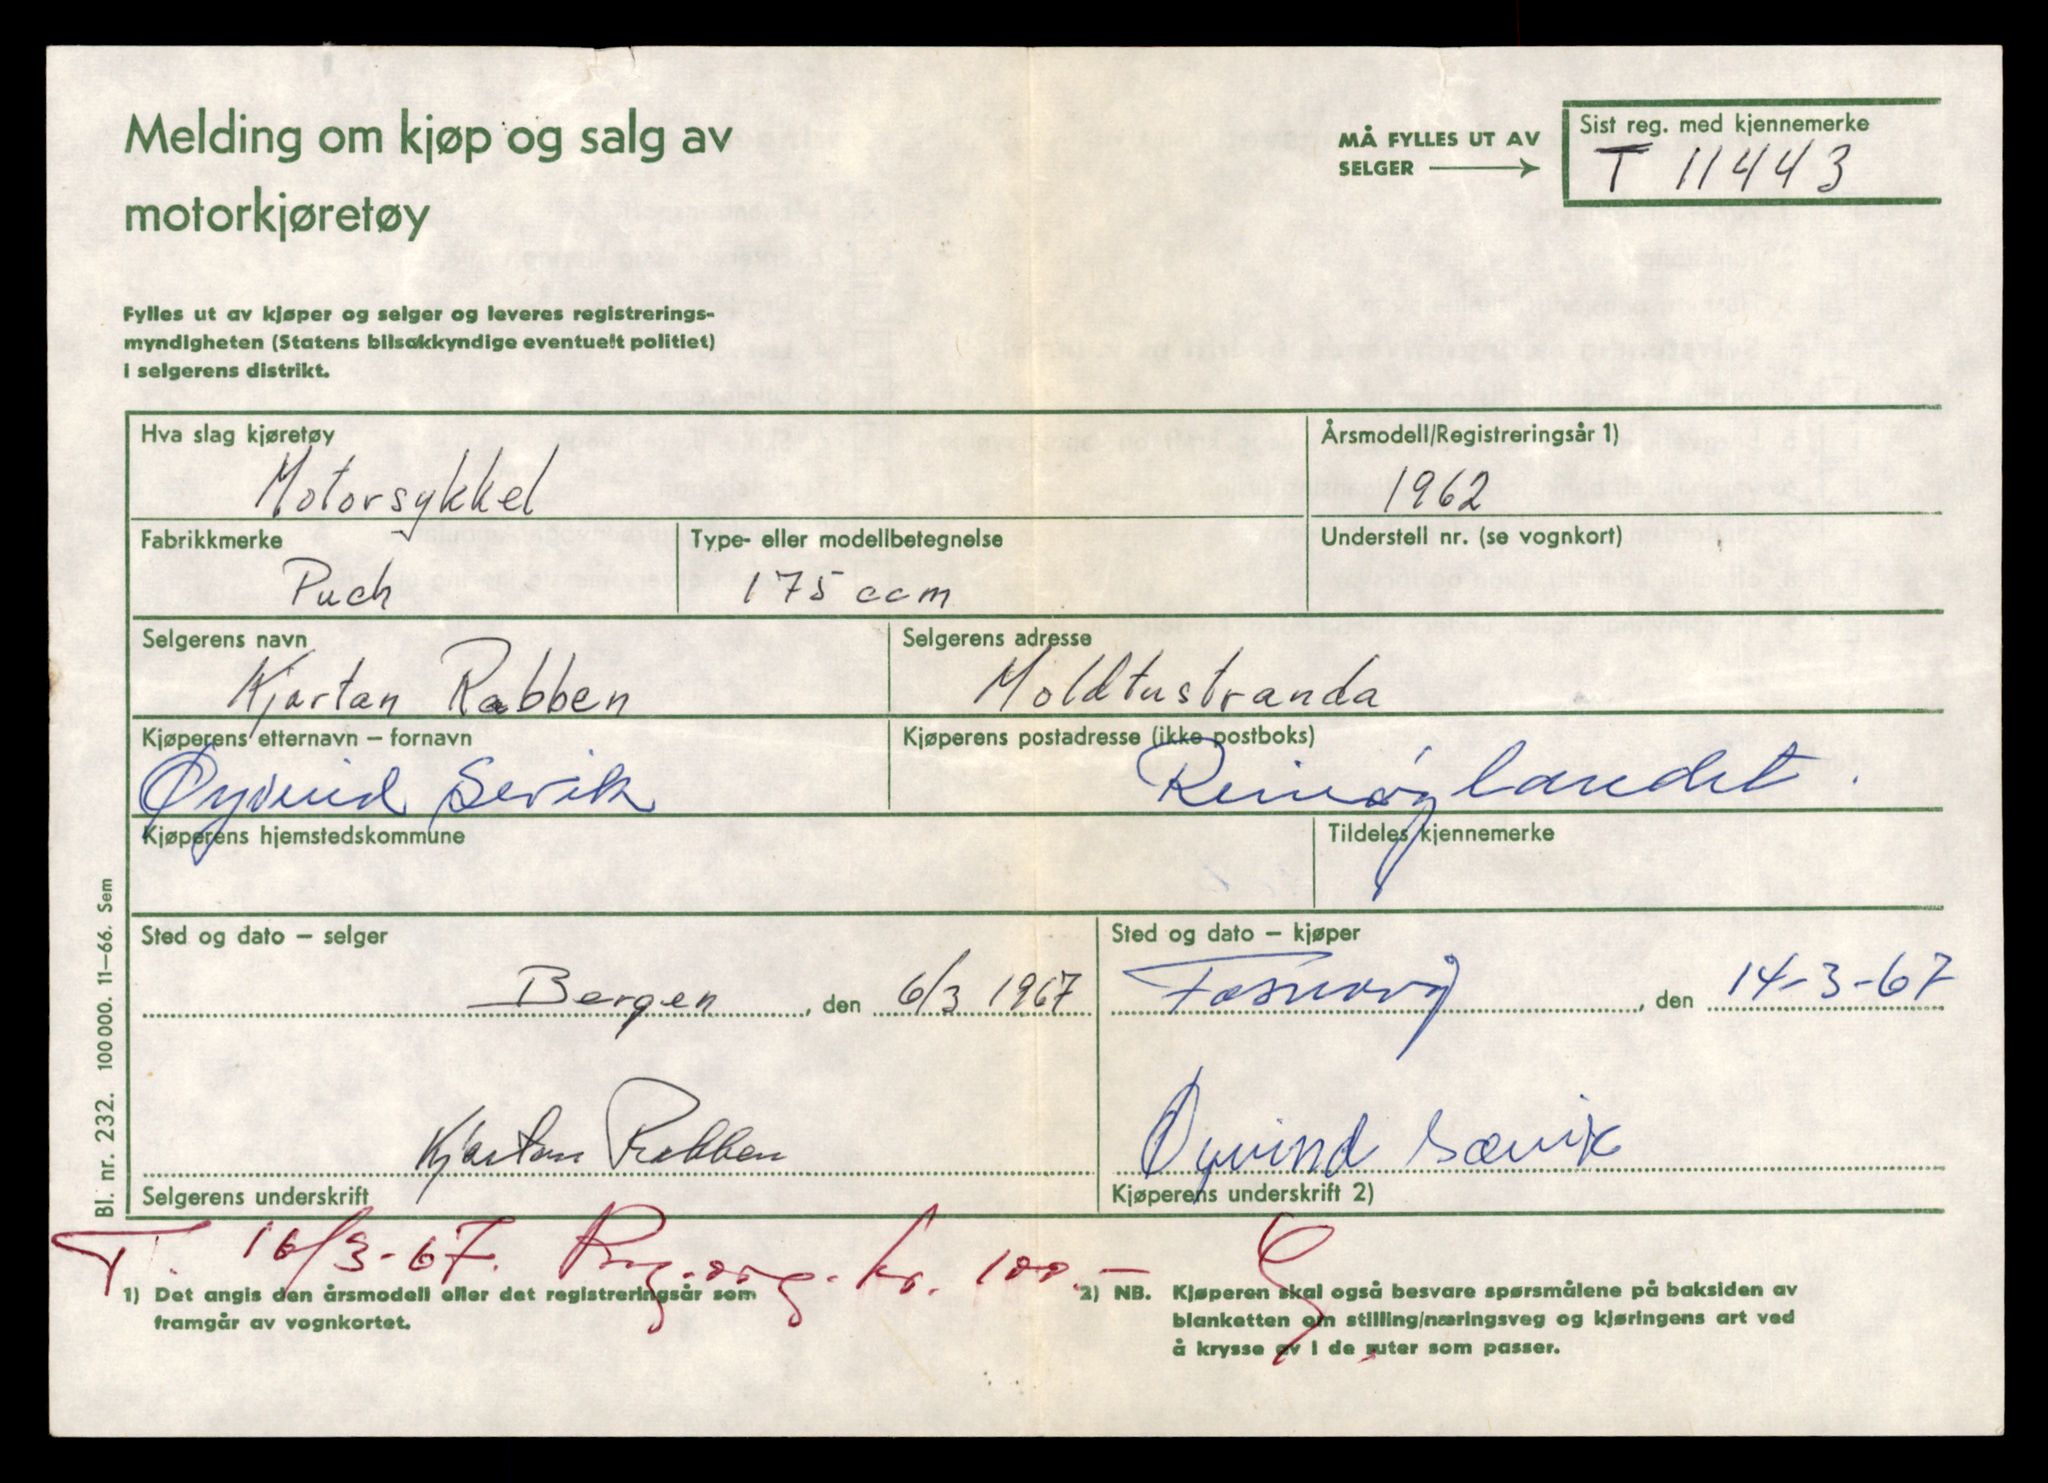 Melding om kjøp og salg av
motorkjøretøy
MÅ FYLLES UT AV
SELGER
Sist reg. med kjennemerke
T 11443
Fylles ut av kjøper og selger og leveres registrerings-
myndigheten (Statens bilsakkyndige eventuelt politiet)
i selgerens distrikt.
Hva slag kjøretøy
Motorsykkel
Årsmodell/Registreringsår 1)
1962
Fabrikkmerke
Puch
Type- eller modellbetegnelse
175 ccm
Understell nr. (se vognkort)
Selgerens navn
Kjartan Rabben
Selgerens adresse
Moldtustranda
Kjøperens etternavn – fornavn
Øyvind Sevik
Kjøperens postadresse (ikke postboks)
Kjøperens hjemstedskommune
Tildeles kjennemerke
Sted og dato – selger
Bergen, den 6/3 1967
Sted og dato – kjøper
Fosnavåg, den 14-3-67
Kjartan Rabben
Selgerens underskrift
Øyvind Sævik
Kjøperens underskrift 2)
T. 16/3-67. kr. 100.-
1) Det angis den årsmodell eller det registreringsår som
framgår av vognkortet.
2) NB. Kjøperen skal også besvare spørsmålene på baksiden av
blanketten om stilling/næringsveg og kjøringens art ved
å krysse av i de ruter som passer.
Bl. nr. 232. 100 000. 11–66. Sem